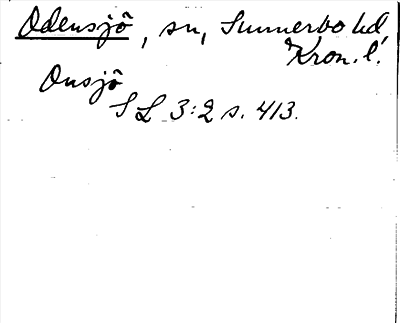 Odensjö, sn, Sunnerbo hd,
Kron. l.
Onsjö
S L 3:2 s. 413.